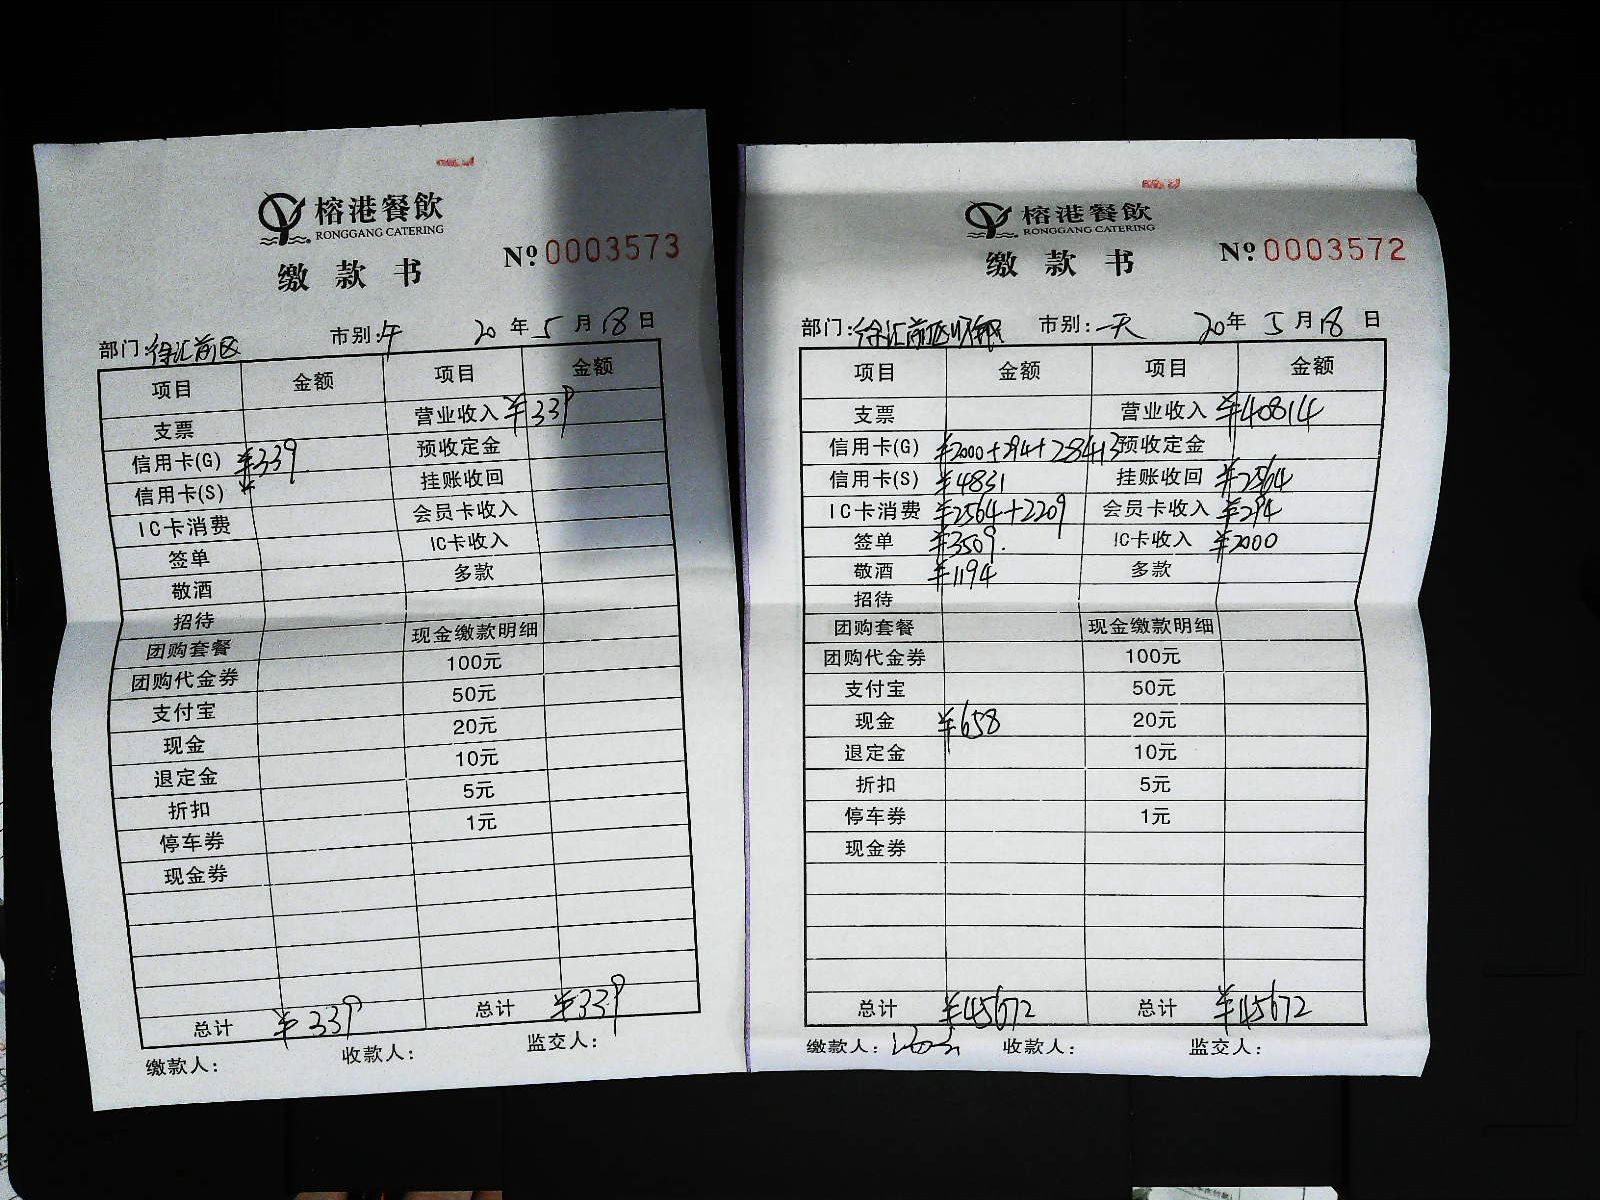 榕港餐飲
RONGGANG CATERING
缴款书
№ 0003573
部门:徐汇前区 市别:午 20年5月18日
项目 金额 项目 金额
支票 营业收入 ¥339
信用卡(G) ¥339. 预收定金
信用卡(S) ¥ 挂账收回
IC卡消费 会员卡收入
签单 IC卡收入
敬酒 多款
招待
团购套餐 现金缴款明细
团购代金券 100元
支付宝 50元
现金 20元
退定金 10元
折扣 5元
停车券 1元
现金券
总计 ¥339 总计 ¥339
缴款人: 收款人: 监交人:
榕港餐飲
RONGGANG CATERING
缴款书
№ 0003572
部门:徐汇前区 市别:一天 20年5月18日
项目 金额 项目 金额
支票 营业收入 ¥40814
信用卡(G) ¥2000+294+28413 预收定金
信用卡(S) ¥4831 挂账收回 ¥2564
IC卡消费 ¥2564+2209 会员卡收入 ¥294
签单 ¥3509. IC卡收入 ¥2000
敬酒 ¥1194 多款
招待
团购套餐 现金缴款明细
团购代金券 100元
支付宝 50元
现金 ¥658 20元
退定金 10元
折扣 5元
停车券 1元
现金券
总计 ¥45672 总计 ¥45672
缴款人: 收款人: 监交人: